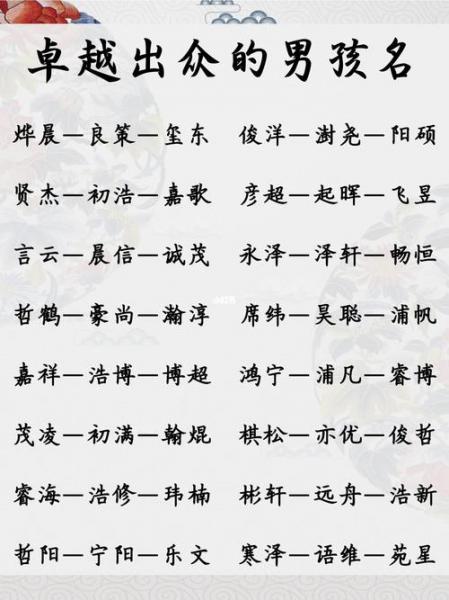 卓越出众的男孩名
烨晨—良策—玺东 俊洋—澍尧—阳硕
贤杰—初浩—嘉歌 彦超—起晖—飞昱
言云—晨信—诚茂 永泽—泽轩—畅恒
哲鹤—豪尚—瀚淳 席纬—昊聪—浦帆
嘉祥—浩博—博超 鸿宁—浦凡—睿博
茂凌—初满—翰焜 棋松—亦优—俊哲
睿海—浩修—玮楠 彬轩—远舟—浩新
哲阳—宁阳—乐文 寒泽—语维—苑星